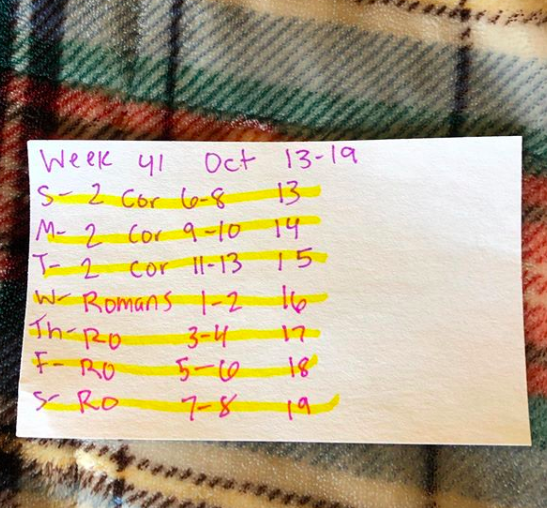 Week 41 Oct 13-19
S- 2 Cor 6-8 13
M- 2 Cor 9-10 14
T- 2 Cor 11-13 15
W- Romans 1-2 16
Th- RO 3-4 17
F- RO 5-6 18
S- RO 7-8 19